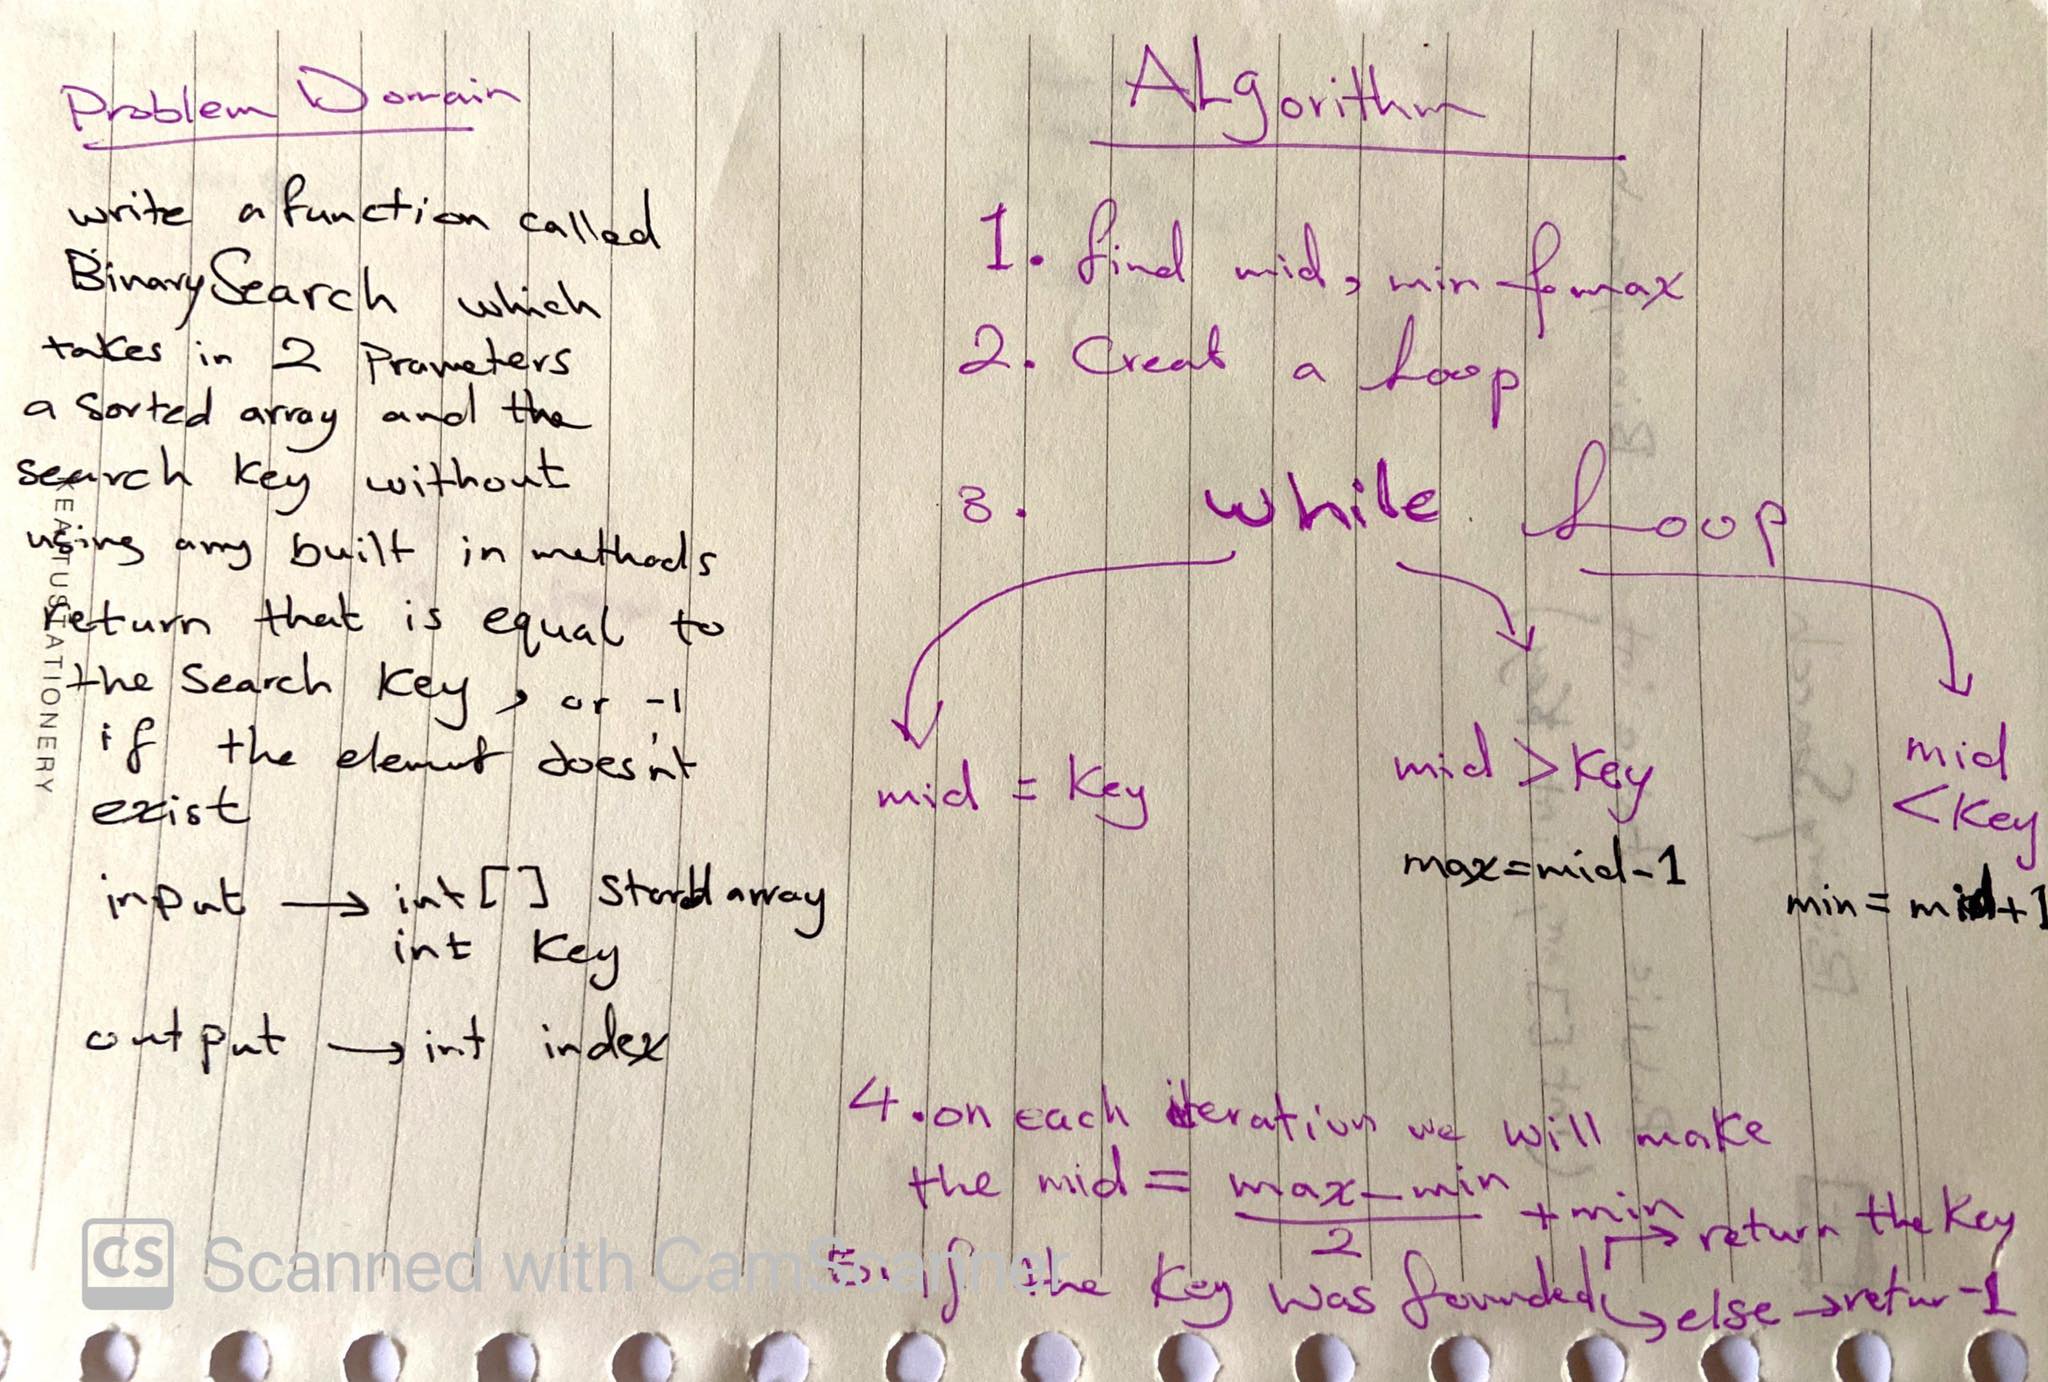 Problem Domain
write a function called
BinarySearch which
takes in 2 Prameters
a sorted array and the
search key without
using any built in methods
return that is equal to
the Search Key, or -1
if the element does'nt
exist
input → int[] array
int Key
output → int index
KEATUSTATIONERY
ALgorithm
1. find mid, min max
2. Creat a Loop
3. while Loop
mid = Key
mid > Key
max=mid-1
mid
<Key
min = mid+1
4. on each iteration we will make
the mid = max-min / 2 + min
5. if the Key was founded → return the Key
→ else → retur -1
CS Scanned with CamScanner